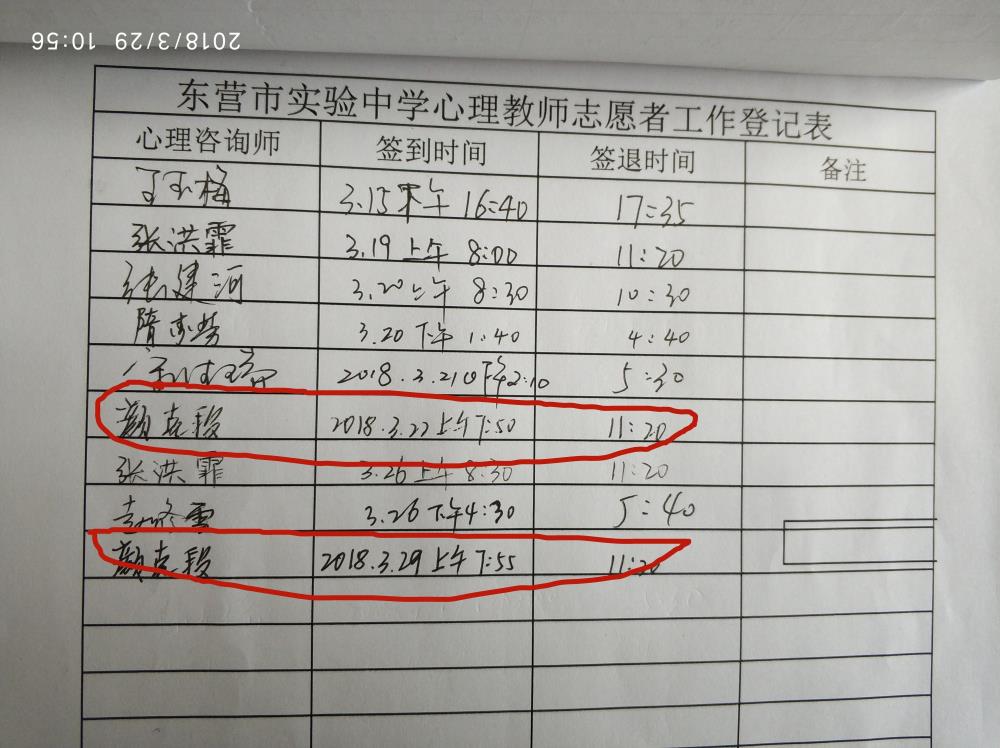 2018/3/29 10:56
东营市实验中学心理教师志愿者工作登记表
心理咨询师 签到时间 签退时间 备注
丁玉梅 3.15 下午 16:40 17:35
张洪霏 3.19 上午 8:00 11:20
张建河 3.20 上午 8:30 10:30
隋 3.20 下午 1:40 4:40
2018.3.21 下午2:10 5:30
颜克段 2018.3.22 上午 7:50 11:20
张洪霏 3.26 上午 8:30 11:20
3.26 下午4:30 5:40
颜克段 2018.3.29 上午 7:55 11:20